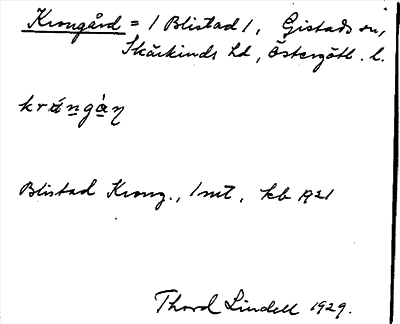 Krongård = 1 Blistad 1, Gistads sn,
Skärkinds hd, Östergötl. l.
krán̲gà̲ɳ
Blistad Krong., 1 mt, kb 1921
Thord Lindell 1929.